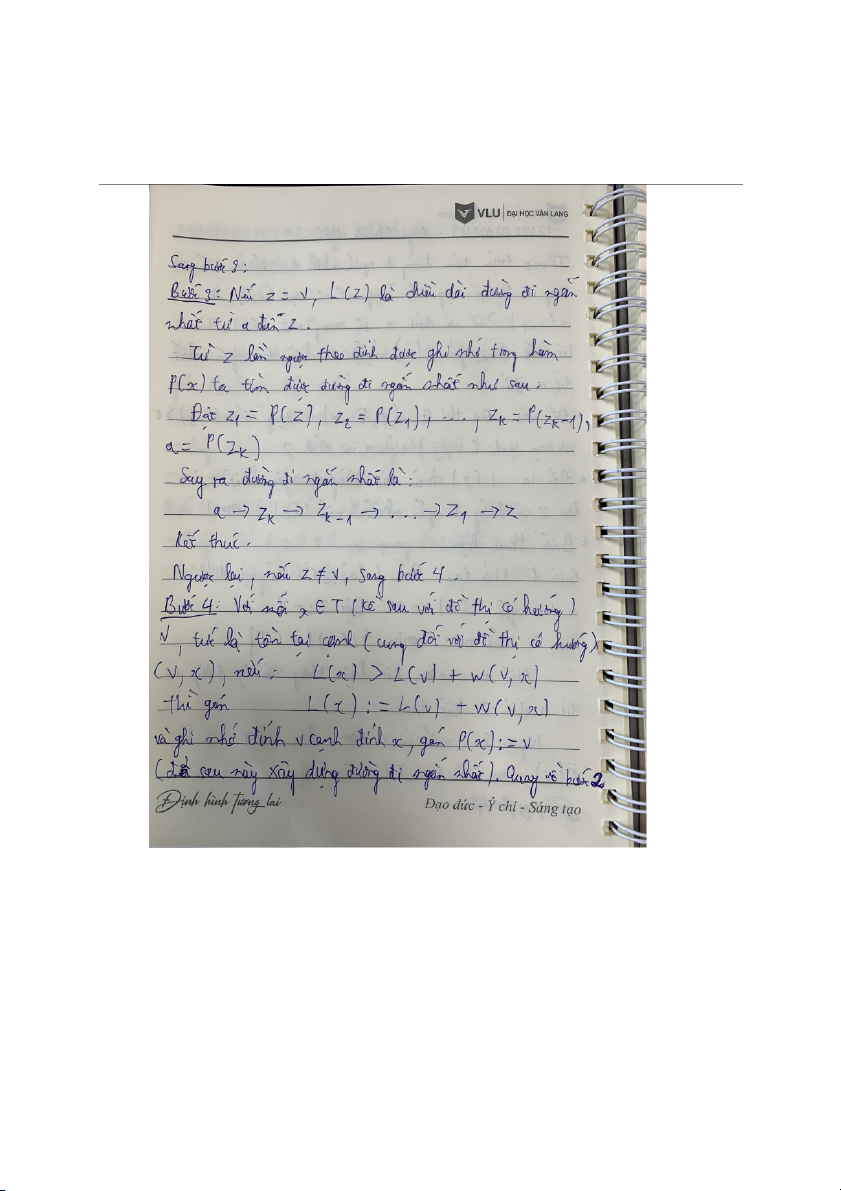 VLU ĐẠI HỌC VĂN LANG
Sang bước 3:
Bước 3: Nếu z = v, L(z) là chiều dài đường đi ngắn
nhất từ a đến z.
Từ z lần ngược theo đỉnh được ghi nhớ trong hàm
P(x) ta tìm được đường đi ngắn nhất như sau:
Đặt z1 = P(z), z2 = P(z1), ..., zk = P(zk-1),
a = P(zk)
Suy ra đường đi ngắn nhất là:
a → zk → zk-1 → ... → z1 → z
Kết thúc.
Ngược lại, nếu z ≠ v, sang bước 4.
Bước 4: Với mỗi x ∈ T (kề sau với đồ thị có hướng)
v, tức là tồn tại cạnh (cung đối với đồ thị có hướng)
(v, x), nếu: L(x) > L(v) + w(v, x)
thì gán L(x) := L(v) + w(v, x)
và ghi nhớ đỉnh v cạnh đỉnh x, gán P(x) := v
(để sau này xây dựng đường đi ngắn nhất). Quay về bước 2
Định hình Tương lai Đạo đức - Ý chí - Sáng tạo